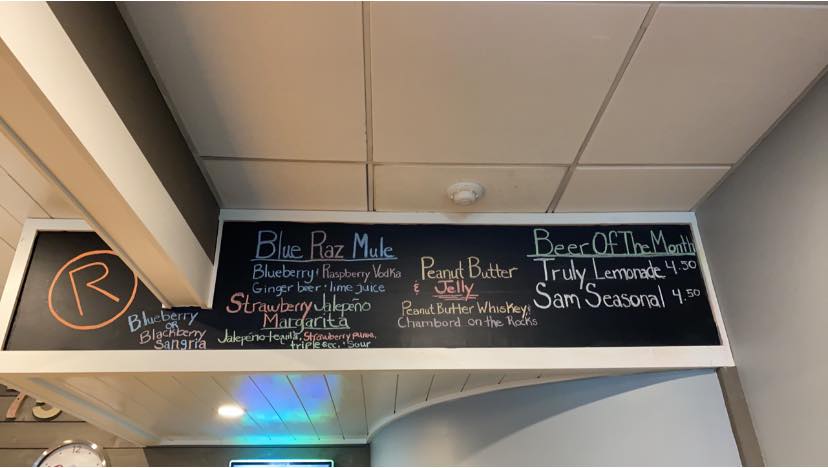 R
Blueberry
or
Blackberry
Sangria
Blue Raz Mule
Blueberry & Raspberry Vodka
Ginger beer & lime juice
Strawberry Jalepeño
Margarita
Jalepeño tequila, Strawberry puree,
triple sec, & Sour
Peanut Butter
& Jelly
Peanut Butter Whiskey &
Chambord on the Rocks
Beer Of The Month
Truly Lemonade 4.50
Sam Seasonal 4.50
12